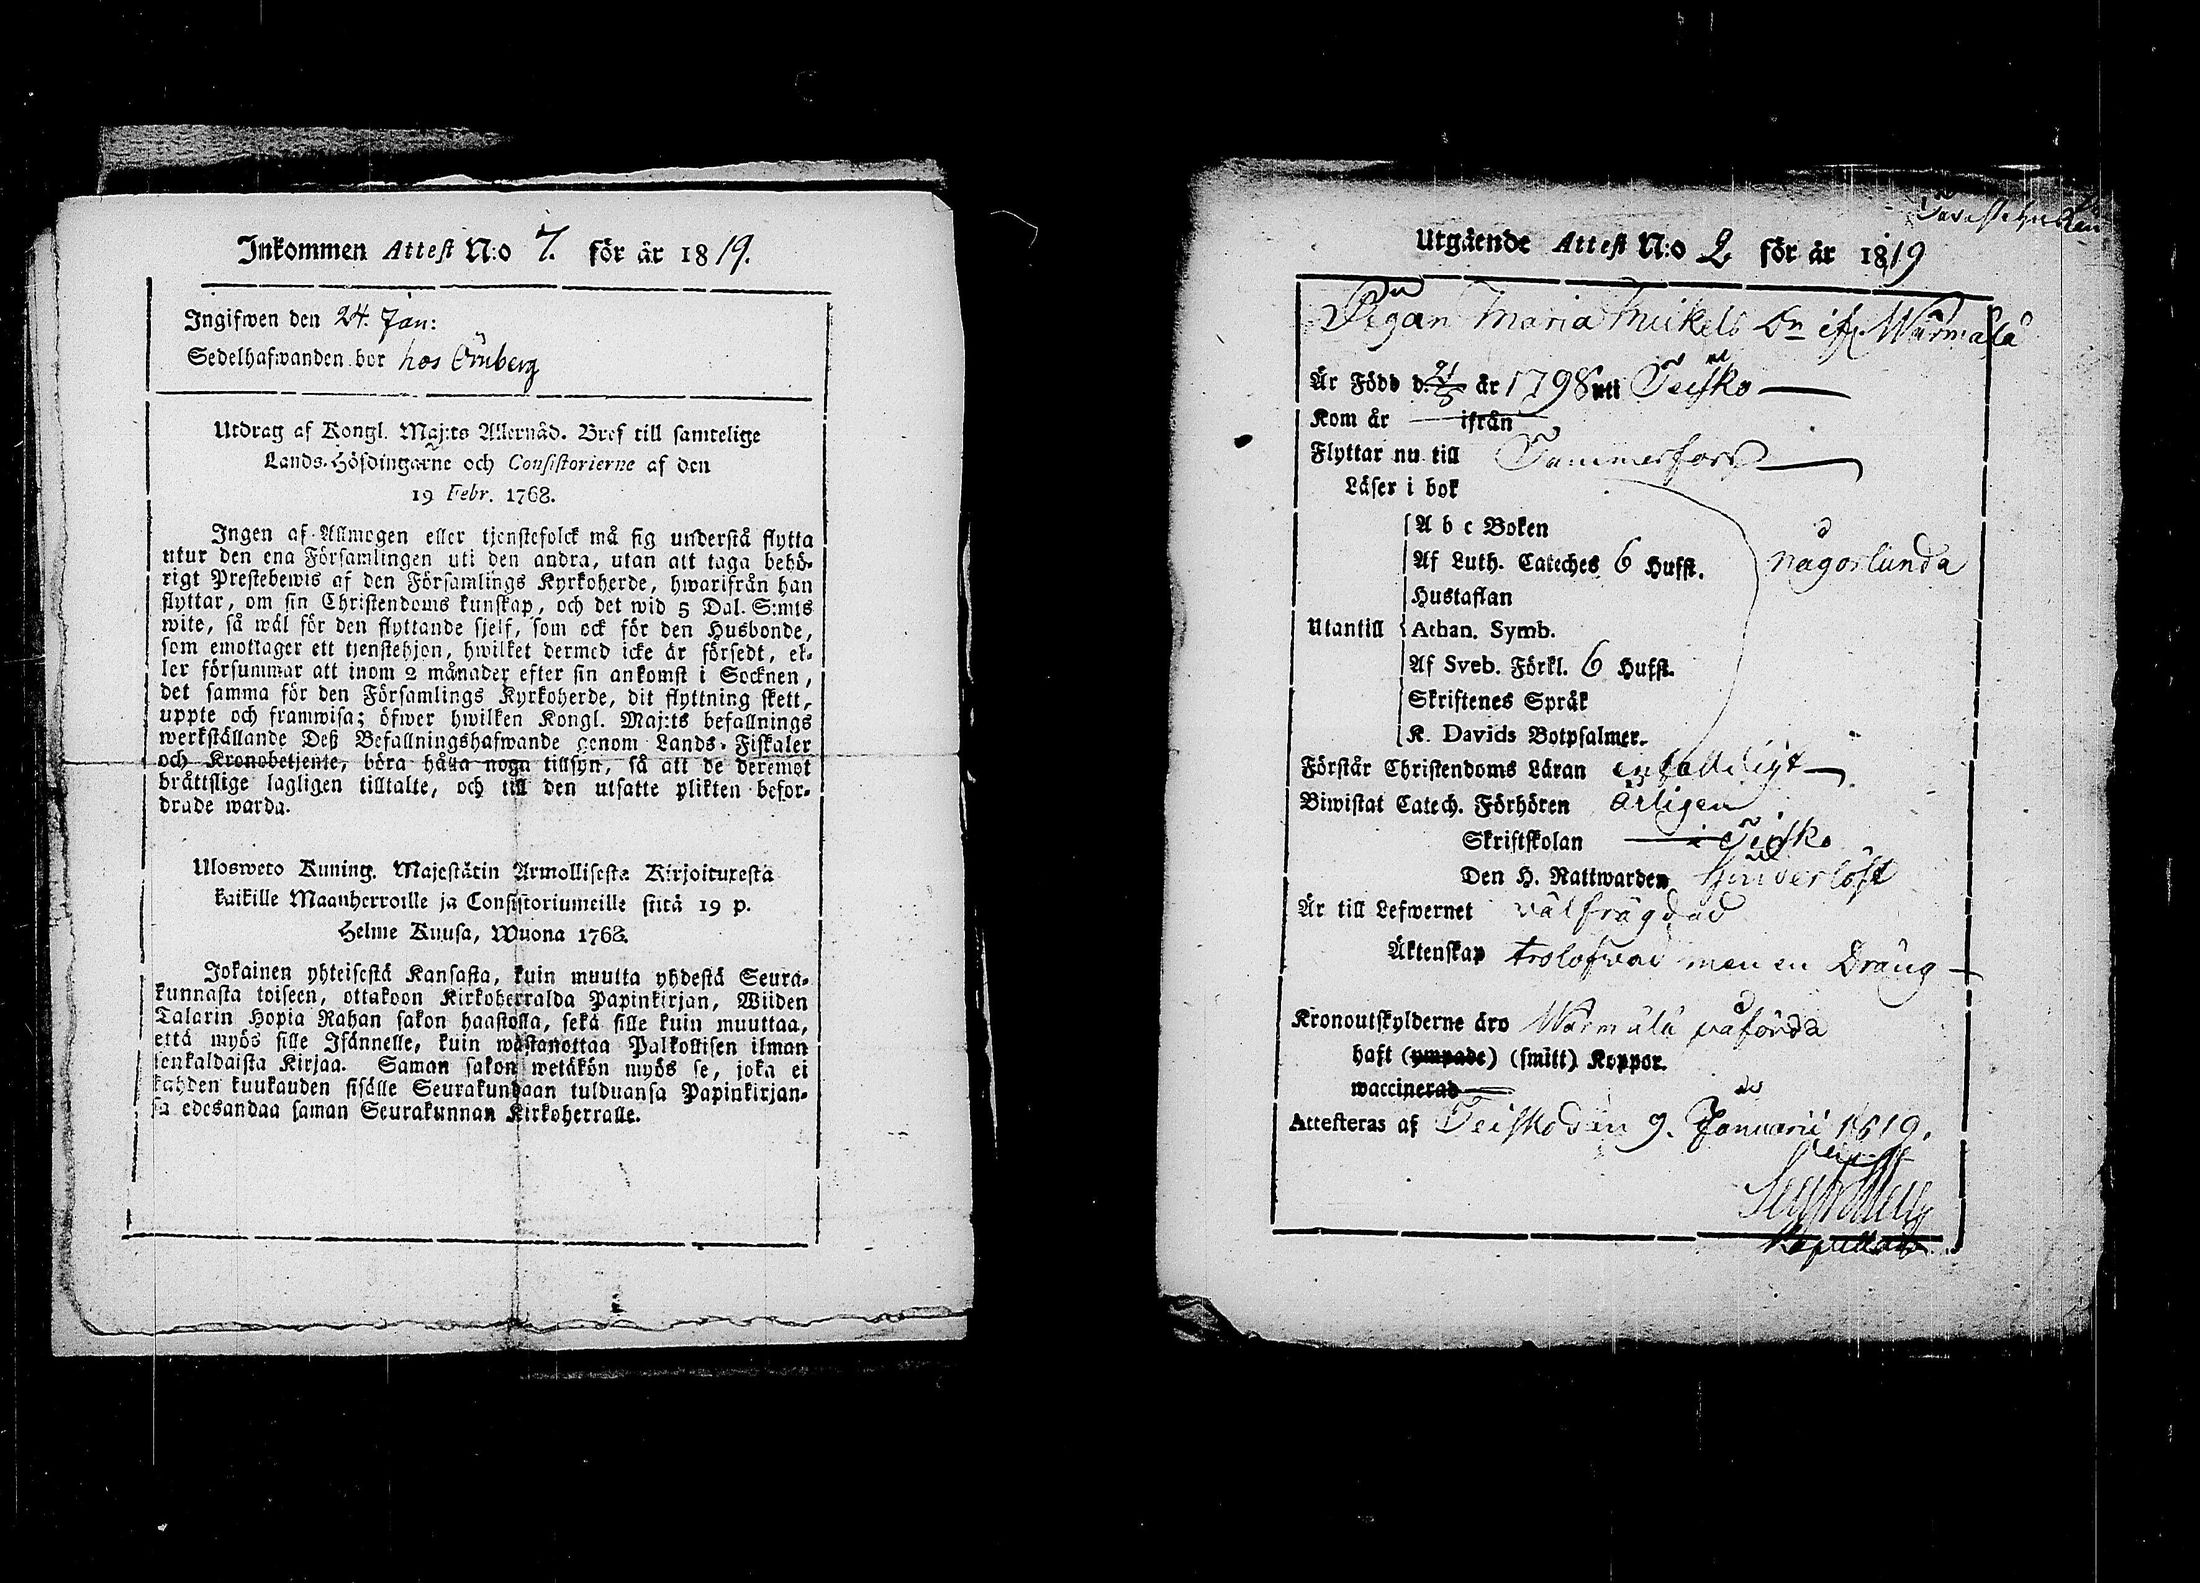 Inkommen Attest N:o 7. för år 1819.
Ingifwen den 24. Jan:
Sedelhafwanden bor hos Örnberg
Utdrag af Kongl. Maj:ts Allernåd. Bref till samtelige
Lands-Höfdingarne och Consistorierne af den
19 Febr. 1768.
Ingen af Allmogen eller tjenstefolck må sig understå flytta
utur den ena Församlingen uti den andra, utan att taga behö-
rigt Prestebewis af den Församlings Kyrkoherde, hwarifrån han
flyttar, om sin Christendoms kunskap, och det wid 5 Dal. S:mts
wite, så wäl för den flyttande sjelf, som ock för den Husbonde,
som emottager ett tjenstehjon, hwilket dermed icke är försedt, el-
ler försummar att inom 2 månader efter sin ankomst i Socknen,
det samma för den Församlings Kyrkoherde, dit flyttning skett,
uppte och framwisa; öfwer hwilken Kongl. Maj:ts befallnings
werkställande Deß Befallningshafwande genom Lands-Fiskaler
och Kronobetjente, böra hålla noga tillsyn, så att de deremot
bråttslige lagligen tilltalte, och till den utsatte plikten befor-
drade warda.
Ulosweto Kuning. Majestätin Armollisesta Kirjoituxesta
kaikille Maanherroille ja Consistoriumeille siitä 19 p.
Helme Kuusa, Wuona 1768.
Jokainen yhteisestä Kansasta, kuin muutta yhdestä Seura-
kunnasta toiseen, ottakoon Kirkoherralda Papinkirjan, Wiiden
Talarin Hopia Rahan sakon haastolla, sekä sille kuin muuttaa,
että myös sille Isännelle, kuin wastanottaa Palkollisen ilman
senkaldaista Kirjaa. Saman sakon wetäkön myös se, joka ei
kahden kuukauden sisälle Seurakundaan tulduansa Papinkirjan-
sa edesandaa saman Seurakunnan Kirkoherralle.
Utgående Attest N:o 2 för år 1819
Pigan Maria Mickels Dr ifr. Wärmälä
Är Född d. år 1798 uti Teisko
Kom år ifrån
Flyttar nu till Tammerfors
Läser i bok
A b c Boken
Af Luth. Cateches 6 Hufst. någorlunda
Hustaflan
Utantill Athan. Symb.
Af Sveb. Förkl. 6 Hufst.
Skriftenes Språk
K. Davids Botpsalmer.
Förstår Christendoms Läran enfaldigt
Biwistat Catech. Förhören årligen
Skriftskolan i Teisko
Den H. Nattwarden hinderlöst
Är till Lefwernet välfrägdad
Äktenskap trolofwad men en Dräng
Kronoutskylderne äro Wärmälä påförda
haft (ympade) (smitt) Koppor.
waccinerad
Attesteras af Teisko den 9. Januarii 1819.
Kapellan